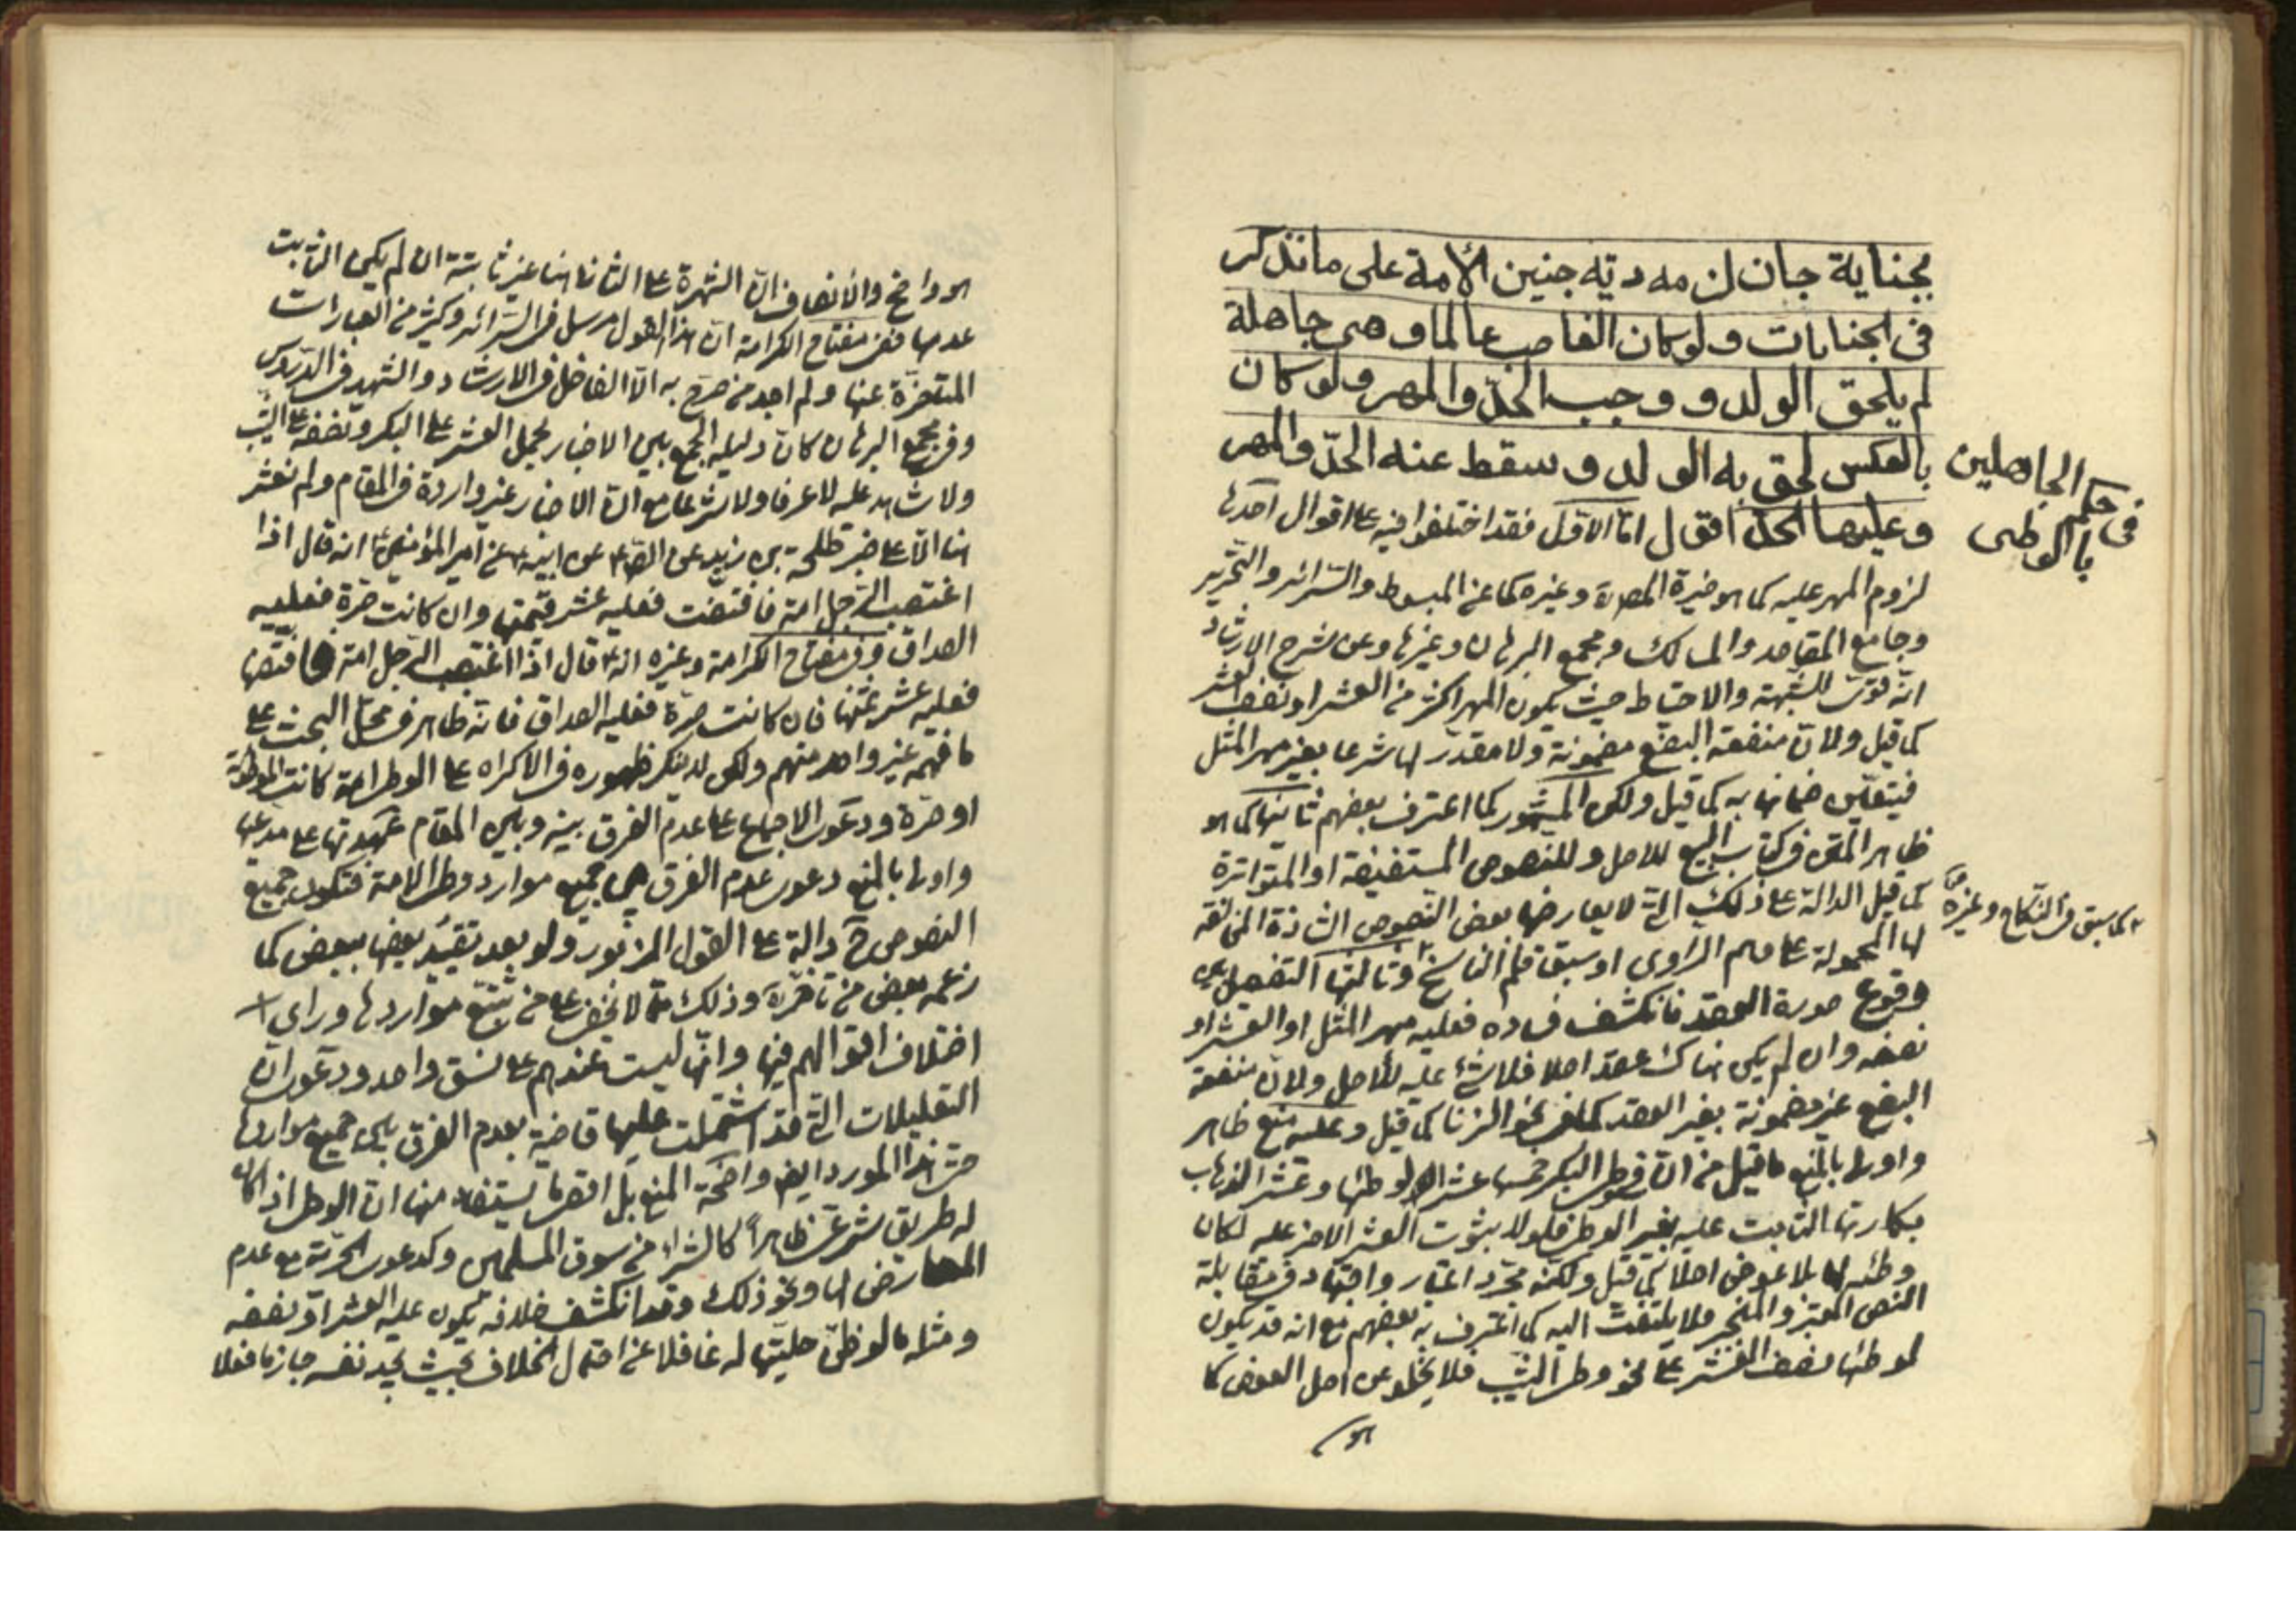 بجناية جان لزمه دية جنين الأمة على ما نذكر
فى الجنايات ولو كان الغاصب عالما وهى جاهلة
لم يلحق الولد و وجب الحدّ والمهر ولو كان
بالعكس لحق به الولد وسقط عنه الحدّ والمهر
وعليها الحدّ اقول امّا الاوّل فقد اختلفوا فيه على اقوال احدها
لزوم المهر عليه كما هو خيرة المصـ ره وغيره كما عن المبسوط والسّرائر والتحرير
وجامع المقاصد والمسالك ومجمع البرهان وغيرها وعن شرح الارشاد
انّه قوىّ للشّبهة والاحتياط حيث يكون المهر اكثر من العشر او نصف العشر
كما قيل ولانّ منفعة البضع مضمونة ولا مقدّر لها شرعا بغير مهر المثل
فيتعيّن ضمانها به كما قيل ولكن المشهور كما اعترف بعضهم ثانيها كما هو
ظاهر المتن فى كتاب البيع للاصل وللنصوص المستفيضة او المتواترة
كما قيل الدالة على ذلك الّتى لا يعارضها بعض النصوص الشاذة المخالفة
لها المحمولة على وهم الراوى او سبق قلم الناسخ وثالثها التفصيل بين
وقوع صورة العقد فانكشف فساده فعليه مهر المثل او العشر او
نصفه وان لم يكن هناك عقد اصلا فلا شئ عليه للأصل ولانّ منفعة
البضع غير مضمونة بغير العقد كما فى نحو الزنا كما قيل وعليه منع ظاهر
واولى بالمنع ما قيل من انّ فى وطى البكر خمسا عشر لوطئها وعشر لذهاب
بكارتها الثابت عليه بغير الوطى فلولا بثوت العشر الاخر عليه لكان
وطئه لها بلا عوض اصلا كما قيل ولكنّه مجرّد اعتبار واجتهاد فى مقابلة
النص المعتبر والمنجبر فلا يلتفت اليه كما اعترف به بعضهم مع انه قد يكون
لوطئها نصف العشر على نحو وطى الثيّب فلا يخلو عن اصل العوض كما
هو
فى حكم الجاهلين
بالوطى
كما سبق فى النّكاح وغيره
هو واضح والانصاف انّ الشهرة على الثانى هنا غير ثابتة ان لم يكن الثابت
عدمها فعن مفتاح الكرامة انّ هذا القول مرسل فى السّرائر وكثير من العبارات
المتاخّرة عنها ولم اجد من صرّح به الّا الفاضل فى الارشاد والشهيد فى الدّروس
وفى مجمع البرهان كان دليله الجمع بين الاخبار بحمل العشر على البكر ونصفه على الثيّب
ولا شاهد عليه لا عرفا ولا شرعا مع انّ الاخبار غير واردة فى المقام ولم نعثر
هنا الّا على خبر طلحة بن زيد عن الصّـ عن ابيه عن امير المؤمنين ع انه قال اذا
اغتصب الرّجل امة فافتضّت فعليه عشر قيمتها وان كانت حرّة فعليه
الصداق وفى مفتاح الكرامة وغيره انه قال اذا اغتصب الرّجل امة فافتضّها
فعليه عشر ثمنها فان كانت حرّة فعليه الصداق فانه ظاهر فى محلّ البحث على
ما فهمه غير واحد منهم ولكن لا ينكر ظهوره فى الاكراه على الوطى امة كانت الموطوئة
او حرّة ودعوى الاجماع على عدم الفرق بينه وبين المقام عهدتها على مدعيها
واولى بالمنع دعوى عدم الفرق بين جميع موارد وطى الامة فتكون جميع
النصوص ح دالة على القول المزبور ولو بعد تقييد بعضها ببعض كما
زعمه بعض من تاخّر وذلك ممّا لا يخفى على من تتبّع مواردها وراى
اختلاف اقوالهم فيها وانّها ليست عندهم على نسق واحد ودعوى انّ
التعليلات الّتى قد اشتملت عليها قاضية بعدم الفرق بين جميع مواردها
حتى هذا المورد ايض واضحة المنع بل اقصى ما يستفاد منها انّ الوطى اذا كان
له طريق شرعىّ ظاهراً كالشراء من سوق المسلمين وكدعوى الحرّية مع عدم
المعارض لها ونحو ذلك وقد انكشف خلافه يكون عليه العشر او نصفه
ومثله ما لو ظنّ حليّتها له غافلا عن احتمال الخلاف بحيث يجد نفسه جازما فعلا